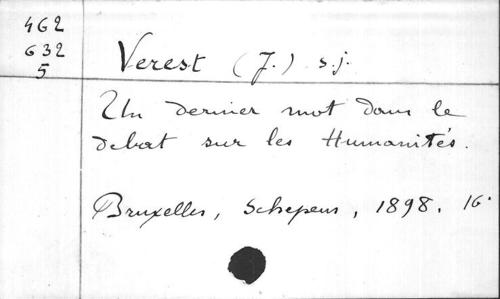 462
632
5
Verest (J.) s.j.
Un dernier mot dans le
debat sur les Humanités.
Bruxelles, Schepens, 1898. 16°